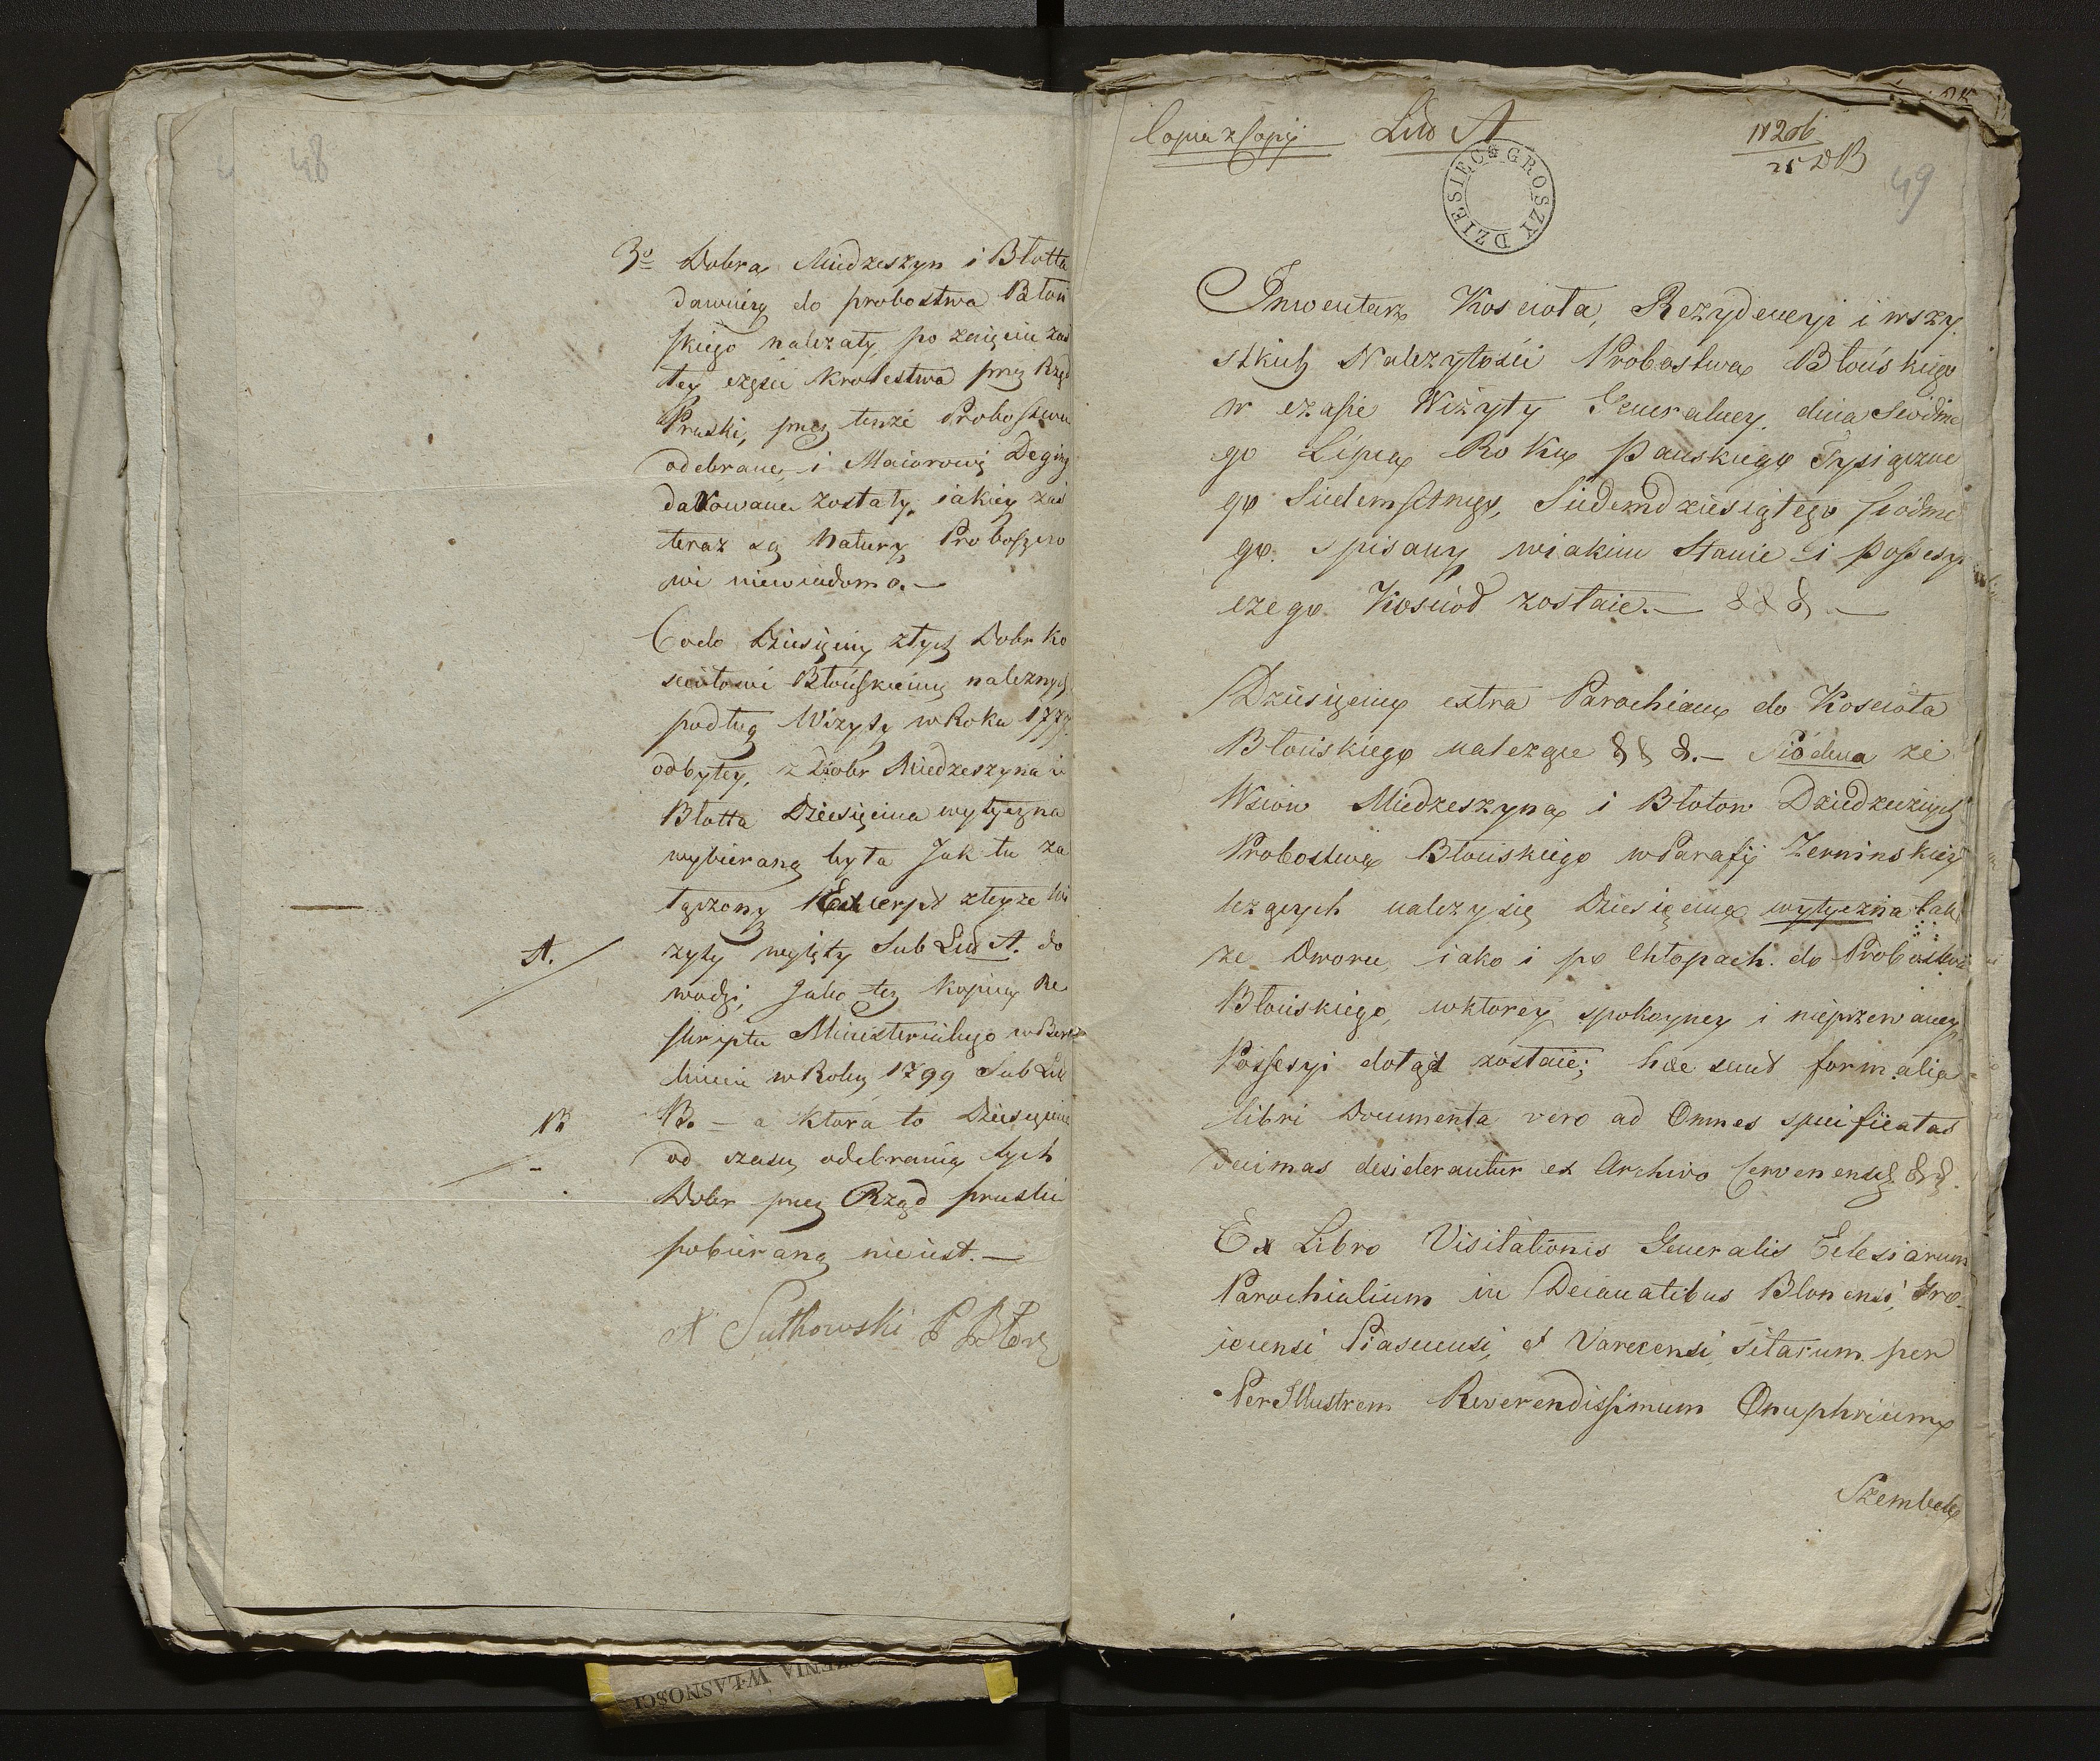 48
3o Dobra Miedzeszyn i Błotta
dawniey do probostwa Błoń
skiego należały, po zaięciu
tey części Krolestwa przez Rząd
Pruski, przez tenże Proboszczowi
odebrane, i Maiorowi Deging
darowane zostały, iakiey zaś
teraz są Natury Proboszczo
wi niewiadomo. —
Codo Dziesięciny ztych Dobr Ko
sciołowi Błońskiemu należnych
podług Wizyty w Roku 1777
odbytey, z Dobr Miedzeszyna i
Błotta Dziesięcina wytyczna
wybieraną była Jak tu za
łączony Excerpt zteyże Wi
A. zyty wyięty Sub Litt A. do
wodzi, Jako też Kopia Re
skryptu Ministerialnego w Ber
linie w Roku 1799 Sub Litt
B B. — a ktora to Dziesięcina
od czasu odebrania tych
Dobr przez Rząd pruski
pobieraną nie iest. —
A Sutkowski P
Copia z Copij Litt A
49
DZIESIĘC GROSZY
Inwentarz Kościoła, Rezydencyi i wszy
stkich Należytości Probostwa Błońskiego
w czasie Wizyty Generalney dnia Siodme
go Lipca Roku Pańskiego Tysiączne
go Siedemsetnego, Siedemdziesiątego siodme
go spisany wiakim Stanie i possesyi
czego Kosciod zostaie. —
Dziesięciny extra Parochiam do Kościoła
Błońskiego należące — Siódma ze
Wsiow Miedzeszyna i Błotow Dziedzicznych
Probostwa Błońskiego w Parafij Zerninskiey
leżących należy się Dziesięcina wytyczna tak
ze Dworu, iako i po Chłopach do Probostwa
Błońskiego, wktorey spokoyney i nieprzerwaney
Possesyi dotąd zostaie; hae sunt formalia
libri Documenta vero ad Omnes specificatas
Decimas desiderantur ex Archivo Cervenensi
Ex Libro Visitationis Generalis Eclesiarum
Parochialium in Decanatibus Blonensi, Gro
icensi Piasecensi, et Varecensi sitarum per
Perillustrem Reverendissimum Onuphrium
Szembek
WŁASNOŚCI